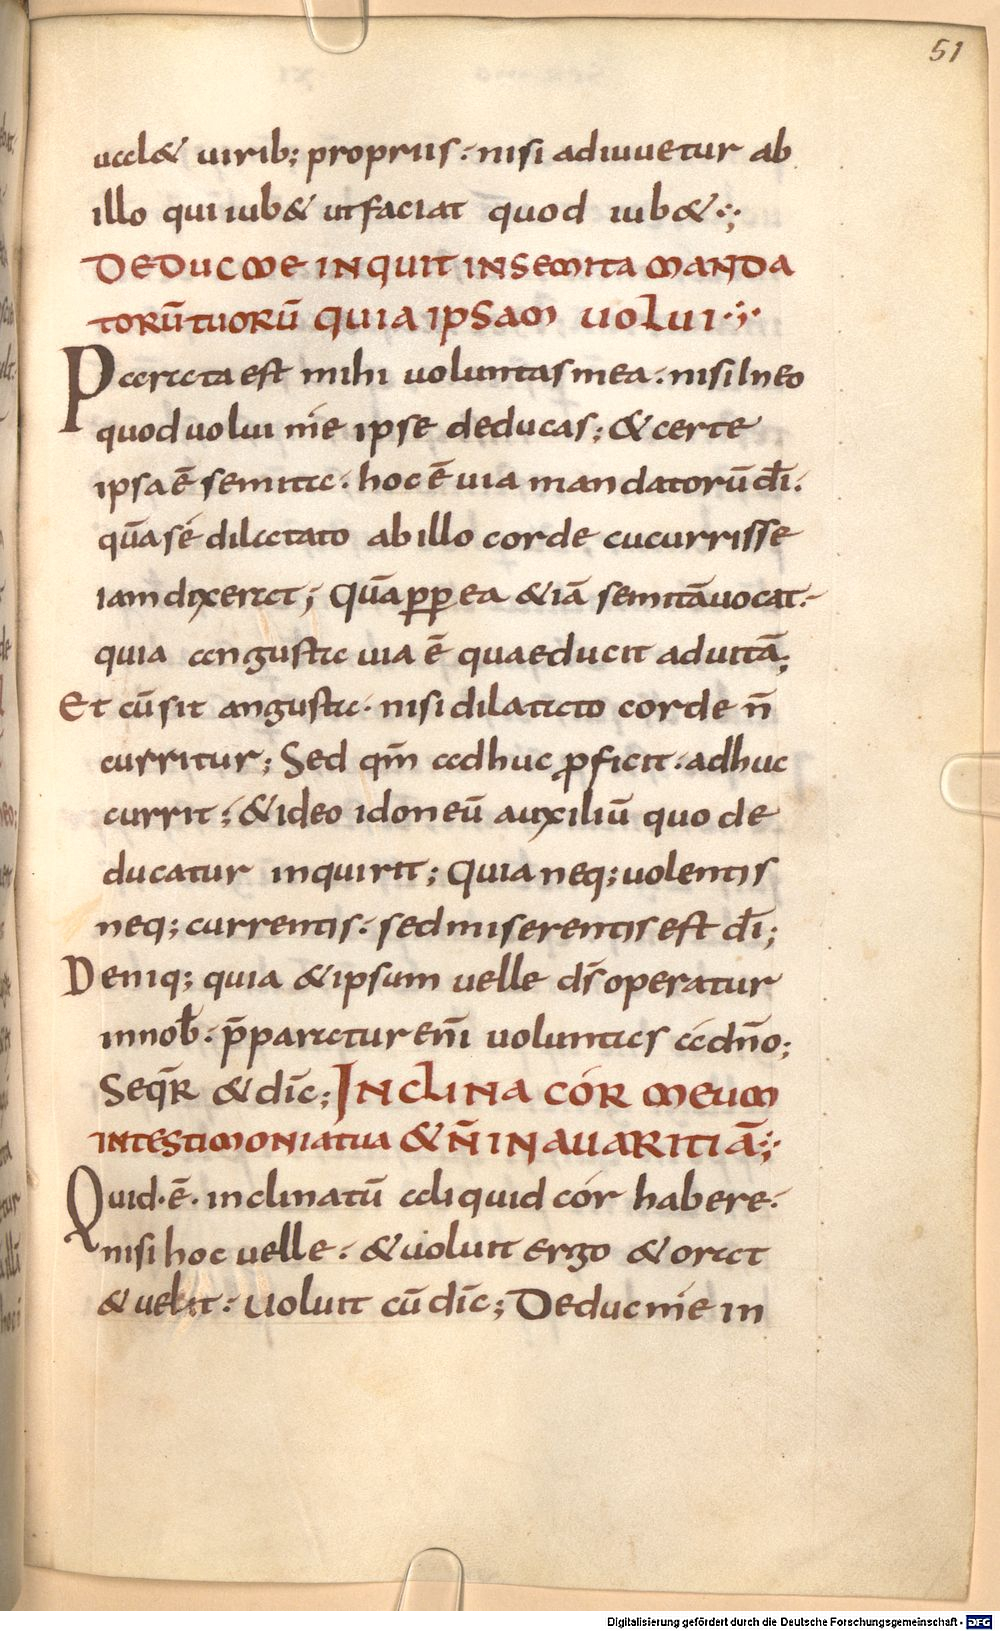 51
ualet uirib; propriis. nisi adiuuetur ab
illo qui iub& utfaciat quod iub&.,
DEDUC ME INQUIT INSEMITA MANDA
TORŪ TUORŪ QUIA IPSAM UOLUI.,
Parata est mihi uoluntas mea. nisi In eo
quod uolui me ipse deducas; & certe
ipsa ē semita. hoc ē uia mandatorū dī.
quā se dilatato ab illo corde cucurrisse
iam dixerat; Quā ppea & iā semitā uocat.
quia angusta uia ē quae ducit aduitā;
Et cū sit angusta. nisi dilatato corde n̄
curritur; Sed qm̄ adhuc pficit. adhuc
currit; & ideo idoneū auxiliū quo de
ducatur inquirit; Quia neq; uolentis
neq; currentis. sed miserentis est dī;
Deniq; quia & ipsum uelle ds̄ operatur
innob̄. p̄paratur enī uoluntas adn̄o;
Seqr̄ & dic̄; INCLINA COR MEUM
INTESTIMONIA TUA & N̄ IN AUARITIĀ.,
Quid. ē. inclinatū aliquid cor habere.
nisi hoc uelle. & uoluit ergo & orat
& uelit. Uoluit cū dic̄; Deduc me in
Digitalisierung gefördert durch die Deutsche Forschungsgemeinschaft - DFG